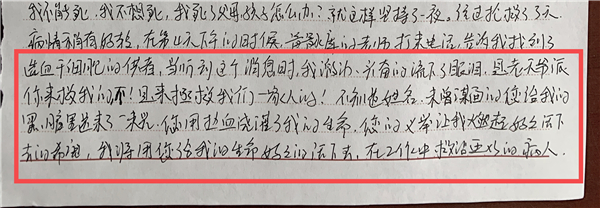 我不能死，我不想死，我死了父母孩子怎么办？就这样坚持了一夜，经过抢救了3天
病情稍有好转，在第4天下午的时候，骨髓库的老师打来电话，告知我找到了
造血干细胞的供者，当听到这个消息时，我激动、兴奋的流下了眼泪，是老天爷派
你来救我的不！是来拯救我们一家人的！不知道姓名，未曾谋面的您给我的
黑暗里送来了一束光，您用热血成就了我的生命，您的义举让我燃起好好活下
去的希望，我将用您给我的生命好好的活下去，在工作中救治更多的病人.